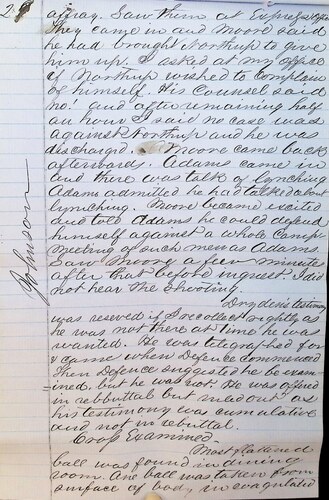 28
affray. Saw them at Express office
They came in and Moore said
he had brought Northup to give
him up. I asked at my office
if Northup wished to complain
of himself. His Counsel said
no! and after remaining half
an hour I said no case was
against Northup and he was
discharged. Moore came back
afterwards. Adams came in
and there was talk of lynching
Adams admitted he had talked about
lynching. Moore became excited
and told Adams he could defend
himself against a whole Camp
meeting of such men as Adams.
Saw Moore a few minutes
after that before inquest I did
not hear the shooting.
Johnson
Dryden's testimony
was reserved if I recollect rightly as
he was not there at time he was
wanted. He was telegraphed for
& came when Defence commenced
Then Defence suggested he be exam-
=ined, but he was not. He was offered
in rebbuttal but ruled out as
his testimony was cumulative
and not in rebuttal.
Cross Examined.
Most flattened
ball was found in dining
room. One ball was taken from
surface of body, in